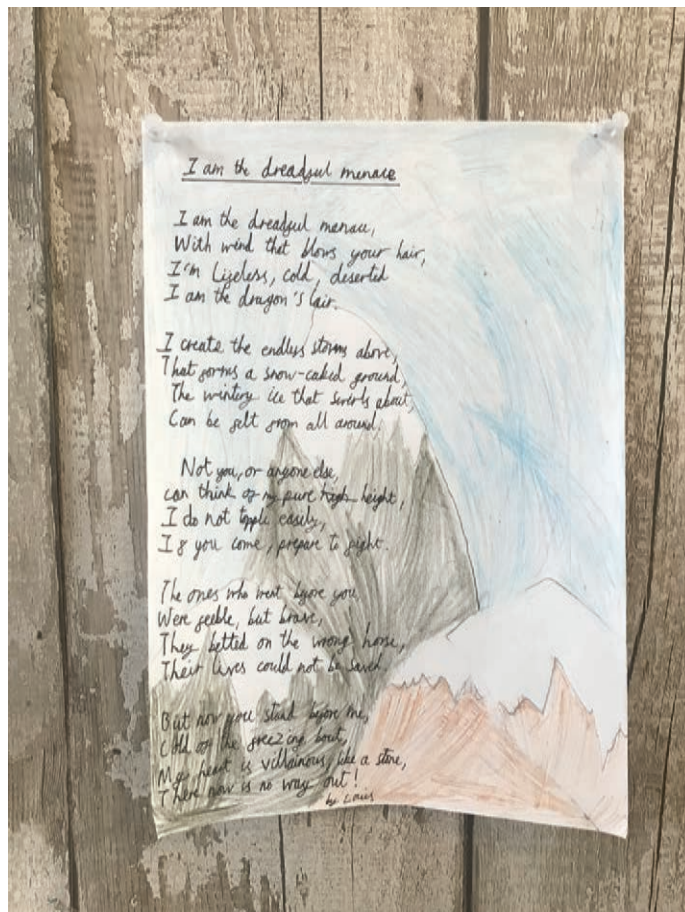 I am the dreadful menace
I am the dreadful menace,
With wind that blows your hair,
I'm lifeless, cold, deserted
I am the dragon's lair.
I create the endless storms above,
That forms a snow-caked ground,
The wintery ice that swirls about,
Can be felt from all around.
Not you, or anyone else,
can think of my pure high height,
I do not topple easily,
If you come, prepare to fight.
The ones who went before you
Were feeble, but brave,
They betted on the wrong horse,
Their lives could not be saved
But now you stand before me,
Cold on the freezing bout,
My heart is villainous, like a stone,
There now is no way out!
by Louis